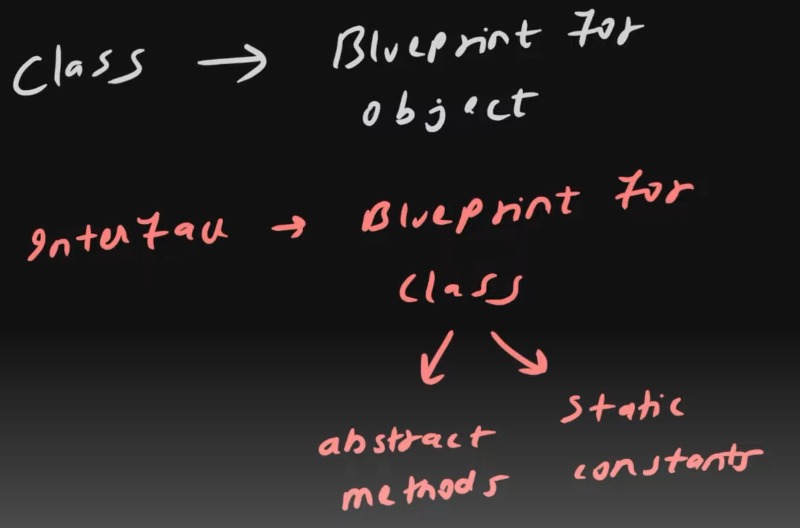 Class → Blueprint for
object
Interface → Blueprint for
Class
abstract
methods
static
constants